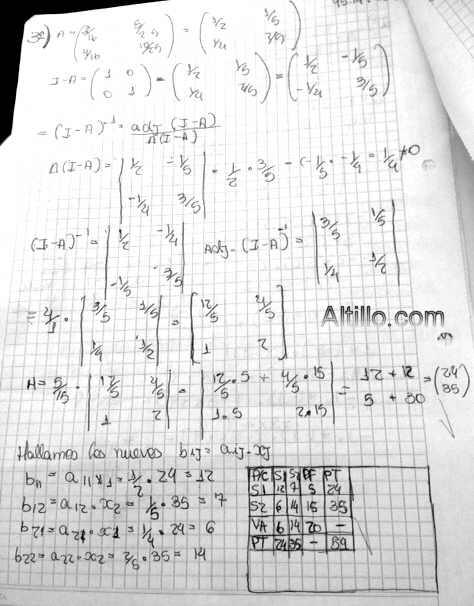 A = (8/16 5/25 4/16 10/25) = (1/2 1/5 1/4 2/5)
I-A = (1 0 0 1) - (1/2 1/5 1/4 2/5) = (1/2 -1/5 -1/4 3/5)
= (I-A)⁻¹ = adj (I-A) / Δ(I-A)
Δ(I-A) = |1/2 -1/5 -1/4 3/5| = 1/2 · 3/5 - (-1/5 · -1/4 = 1/4 ≠0
(I-A)⁻¹ = |1/2 -1/4 -1/5 3/5| Adj- (I-A)⁻¹ = |3/5 1/5 1/4 1/2|
= 4/1 · |3/5 1/5 1/4 1/2| = [12/5 4/5 1 2]
Altillo.com
A = 5/15 · |12/5 4/5 1 2| = |12/5 · 5 + 4/5 · 15 1·5 2·15| = 12 + 12 5 + 30 = (24 35)
Hallamos los nuevos bij = aij · xj
b11 = a11 x1 = 1/2 · 24 = 12
b12 = a12 · x2 = 1/5 · 35 = 7
b21 = a21 · x1 = 1/4 · 24 = 6
b22 = a22 · x2 = 2/5 · 35 = 14
S1 S2 DF PT
S1 12 7 5 24
S2 6 14 15 35
VA 6 14 20 -
PT 24 35 - 59